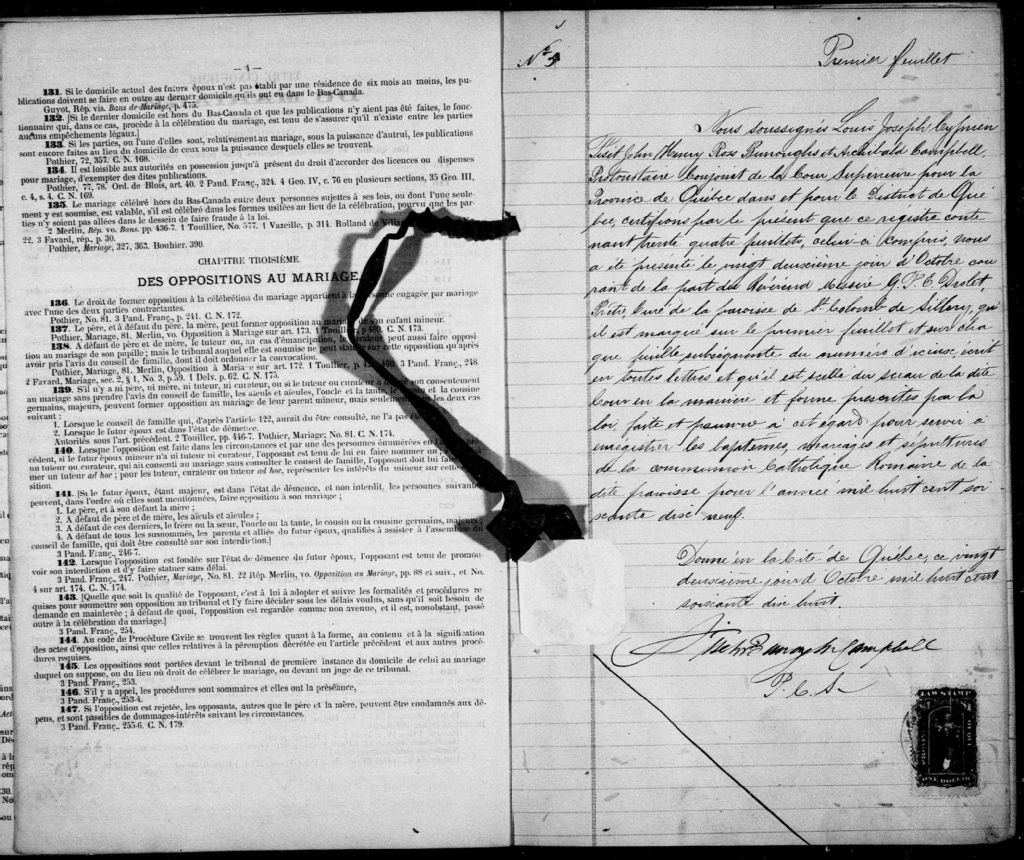 — 4 —
131. Si le domicile actuel des futurs époux n'est pas établi par une résidence de six mois au moins, les pu-
blications doivent se faire en outre au dernier domicile qu'ils ont eu dans le Bas-Canada.
Guyot, Rép. vis. Bans de Mariage, p. 475.
132. [Si le dernier domicile est hors du Bas-Canada et que les publications n'y aient pas été faites, le fonc-
tionnaire qui, dans ce cas, procède à la célébration du mariage, est tenu de s'assurer qu'il n'existe entre les parties
aucuns empêchements légaux.]
133. Si les parties, ou l'une d'elles sont, relativement au mariage, sous la puissance d'autrui, les publications
sont encore faites au lieu du domicile de ceux sous la puissance desquels elles se trouvent.
Pothier, 72, 357. C. N. 168.
134. Il est loisible aux autorités en possession jusqu'à présent du droit d'accorder des licences ou dispenses
pour mariage, d'exempter des dites publications.
Pothier, 77, 78. Ord. de Blois, art. 40. 2 Pand. Franç., 324. 4 Geo. IV, c. 76 en plusieurs sections, 35 Geo. III,
c. 4, s. 4. C. N. 169.
135. Le mariage célébré hors du Bas-Canada entre deux personnes sujettes à ses lois, ou dont l'une seule-
ment y est soumise, est valable, s'il est célébré dans les formes usitées au lieu de la célébration, pourvu que les par-
ties n'y soient pas allées dans le dessein de faire fraude à la loi.
2 Merlin, Rép. vo. Bans. pp. 436-7. 1 Touillier, No. 577. 1 Vazeille, p. 314. Rolland de Villar
22. 3 Favard, rép., p. 30.
Pothier, Mariage, 327, 363. Bouhier. 390.
CHAPITRE TROISIÈME.
DES OPPOSITIONS AU MARIAGE.
136. Le droit de former opposition à la célébration du mariage appartient à la personne engagée par mariage
avec l'une des deux parties contractantes.
Pothier, No. 81. 3 Pand. Franç., p. 241. C. N. 172.
137. Le père, et à défaut du père, la mère, peut former opposition au mariage de son enfant mineur.
Pothier, Mariage, 81. Merlin, vo. Opposition à Mariage sur art. 173. 1 Touillier, p. 489. C. N. 173.
138. A défaut de père et de mère, le tuteur ou, au cas d'émancipation, le curateur peut aussi faire opposi
tion au mariage de son pupille; mais le tribunal auquel elle est soumise ne peut statuer sur cette opposition qu'après
avoir pris l'avis du conseil de famille, dont il doit ordonner la convocation.
Pothier, Mariage, 81. Merlin, Opposition à Mariage sur art. 172. 1 Touillier, p. 3 Pand. Franç., 248.
2 Favard, Mariage, sec. 2, § 1, No. 3, p. 59. 1 Delv. p. 62. C. N. 175.
139. S'il n'y a ni père, ni mère, ni tuteur, ni curateur, ou si le tuteur ou curateur a donné son consentement
au mariage sans prendre l'avis du conseil de famille, les aïeuls et aïeules, l'oncle et la tante, le cousin et la cousine
germains, majeurs, peuvent former opposition au mariage de leur parent mineur, mais seulement dans les deux cas
suivant :
1. Lorsque le conseil de famille qui, d'après l'article 122, aurait dû être consulté, ne l'a pas été
2. Lorsque le futur époux est dans l'état de démence.
Autorités sous l'art. précédent. 2 Touiller, pp. 446-7. Pothier, Mariage; No. 81. C. N. 174.
140. Lorsque l'opposition est faite dans les circonstances et par une des personnes énumérées en l'article pré-
cédent, si le futur époux mineur n'a ni tuteur ni curateur, l'opposant est tenu de lui en faire nommer un ; s'il a
un tuteur ou curateur, qui ait consenti au mariage sans consulter le conseil de famille, l'opposant doit lui faire nom-
mer un tuteur ad hoc ; pour les tuteur, curateur ou tuteur ad hoc, représenter les intérêts du mineur sur cette oppo-
sition.
141. [Si le futur époux, étant majeur, est dans l'état de démence, et non interdit, les personnes suivantes
peuvent, dans l'ordre où elles sont mentionnées, faire opposition à son mariage ;
1. Le père, et à son défaut la mère ;
2. A défaut de père et de mère, les aïeuls et aïeules ;
3. A défaut de ces derniers, le frère ou la sœur, l'oncle ou la tante, le cousin ou la cousine germains, majeurs ;
4. A défaut de tous les susnommés, les parents et alliés du futur époux, qualifiés à assister à l'assemblée du
conseil de famille, qui doit être consulté sur son interdiction.]
3 Pand. Franç., 246-7.
142. Lorsque l'opposition est fondée sur l'état de démence du futur époux, l'opposant est tenu de promou-
voir son interdiction et d'y faire statuer sans délai.
3 Pand. Franç., 247. Pothier, Mariage, No. 81. 22 Rép. Merlin, vo. Opposition au Mariage, pp. 88 et suiv., et No.
4 sur art. 174. C. N. 174.
143. [Quelle que soit la qualité de l'opposant, c'est à lui à adopter et suivre les formalités et procédures re
quises pour soumettre son opposition au tribunal et l'y faire décider sous les délais voulus, sans qu'il soit besoin de
demande en mainlevée ; à défaut de quoi, l'opposition est regardée comme non avenue, et il est, nonobstant, passé
outre à la célébration du mariage.]
3 Pand. Franç., 254.
144. Au code de Procédure Civile se trouvent les règles quant à la forme, au contenu et à la signification
des actes d'opposition, ainsi que celles relatives à la péremption décrétée en l'article précédent et aux autres procé-
dures requises.
145. Les oppositions sont portées devant le tribunal de première instance du domicile de celui au mariage
duquel on suppose, ou du lieu où doit de célébrer le mariage, ou devant un juge de ce tribunal.
3 Pand. Franç., 253.
146. S'il y a appel, les procédures sont sommaires et elles ont la préséance,
3 Pand. Franç., 253-4.
147. Si l'opposition est rejetée, les opposants, autres que le père et la mère, peuvent être condamnés aux dé-
pens, et sont passibles de dommages-intérêts suivant les circonstances.
3 Pand. Franç., 255-6. C. N. 179.
Premier feuillet
Nous soussignés Louis Joseph Cyprien
Fiset, John Henry Ross Burroughs et Archibald Campbell,
Protonotaire Conjoint de la Cour Supérieure pour la
Province de Québec dans et pour le District de Qué
bec, certifions par le présent que ce registre conte
nant trente quatre feuillets, celui-ci compris, nous
a été présenté le vingt deuxième jour d'Octobre cou
rant de la part du Révérend Messire G. P. E. Drolet,
Prêtre, Curé de la paroisse de St. Colomb de Sillery, qu'
il est marqué sur le premier feuillet et sur cha
que feuillet subséquente du numéro d'iceux, écrit
en toutes lettres et qu'il est scellé du sceau de la dite
Cour en la manière et forme prescrites par la
loi, faite et pourvue à cet égard pour servir à
enregistrer les baptêmes, mariages et sépultures
de la communion Catholique Romaine de la
dite paroisse pour l'année mil huit cent soi-
xante dix neuf.
Donné en la Cité de Québec, ce vingt
deuxième jour d'Octobre mil huit cent
soixante dix huit.
Fiset Burroughs Campbell
P. C. S.
LAW STAMP
ONE DOLLAR